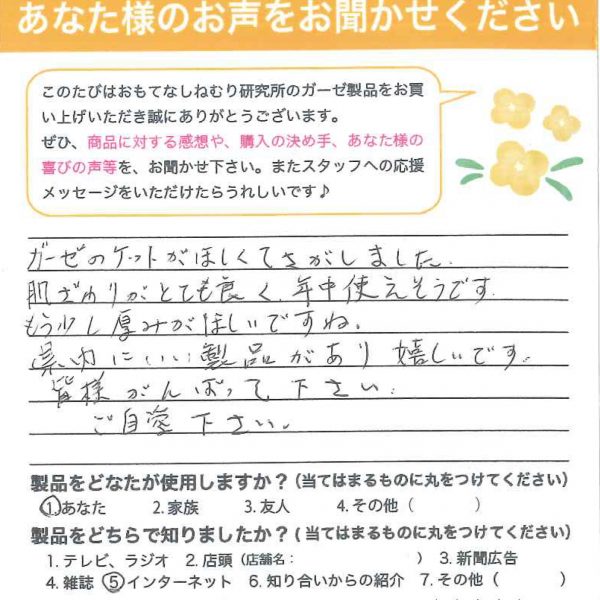 あなた様のお声をお聞かせください
このたびはおもてなしねむり研究所のガーゼ製品をお買
い上げいただき誠にありがとうございます。
ぜひ、商品に対する感想や、購入の決め手、あなた様の
喜びの声等を、お聞かせ下さい。またスタッフへの応援
メッセージをいただけたらうれしいです♪
ガーゼのケットがほしくてさがしました.
肌ざわりがとても良く、年中使えそうです.
もう少し厚みがほしいですね。
県内にいい製品があり嬉しいです.
皆様がんばって下さい.
ご自愛下さい。
製品をどなたが使用しますか？(当てはまるものに丸をつけてください)
1.あなた 2.家族 3.友人 4.その他（ ）
製品をどちらで知りましたか？(当てはまるものに丸をつけてください)
1.テレビ、ラジオ 2.店頭（店舗名： ） 3.新聞広告
4.雑誌 5インターネット 6.知り合いからの紹介 7.その他（ ）